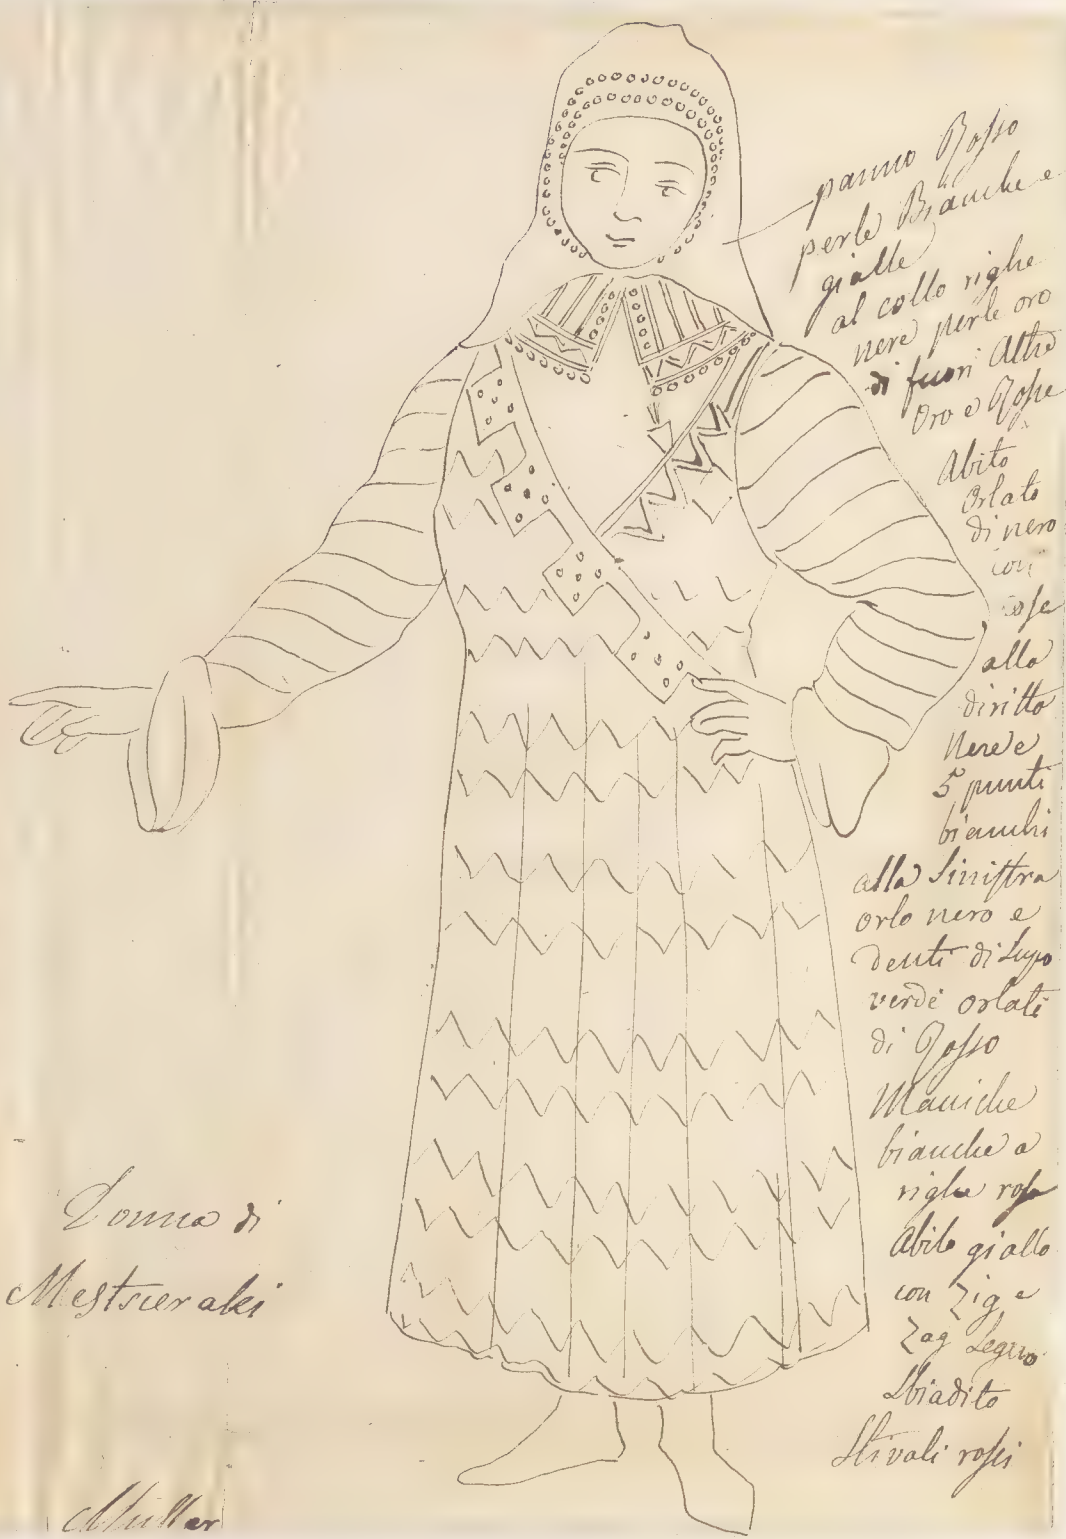 panno Rosso
perle Bianche e
gialle
al collo righe
nere perle oro
di fuori Altre
oro e Rosse
Abito
orlato
di nero
con
cose
alla
diritto
nere e
5 punti
bianchi
alla Sinistra
orlo nero e
Denti di Lupo
verdi orlati
di Rosso
Maniche
bianche a
righe rosse
Abito giallo
con zig e
zag Legno
Sbiadito
Stivali rossi
Donna di
Mestsceraki
Müller